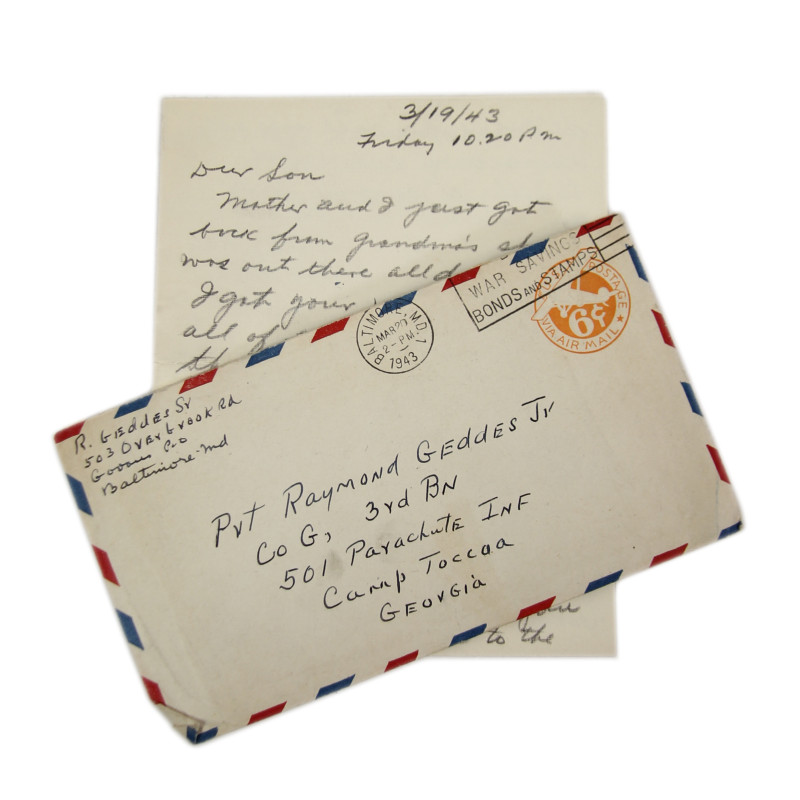 3/19/43
Friday 10.20 Pm
Dear Son
Mother and I just got
back from grandma's
was out there all d
I got your
all of
th
WAR SAVINGS
BONDS AND STAMPS
POSTAGE
6¢
VIA AIR MAIL
BALTIMORE, MD. 1
MAR 20
2-PM
1943
R. GEDDES Sr
503 Overbrook Rd
Govans P-O
Baltimore-Md
Pvt Raymond GEDDES Jr
Co G, 3rd BN
501 Parachute INF
Camp Toccoa
GEORGia
to the